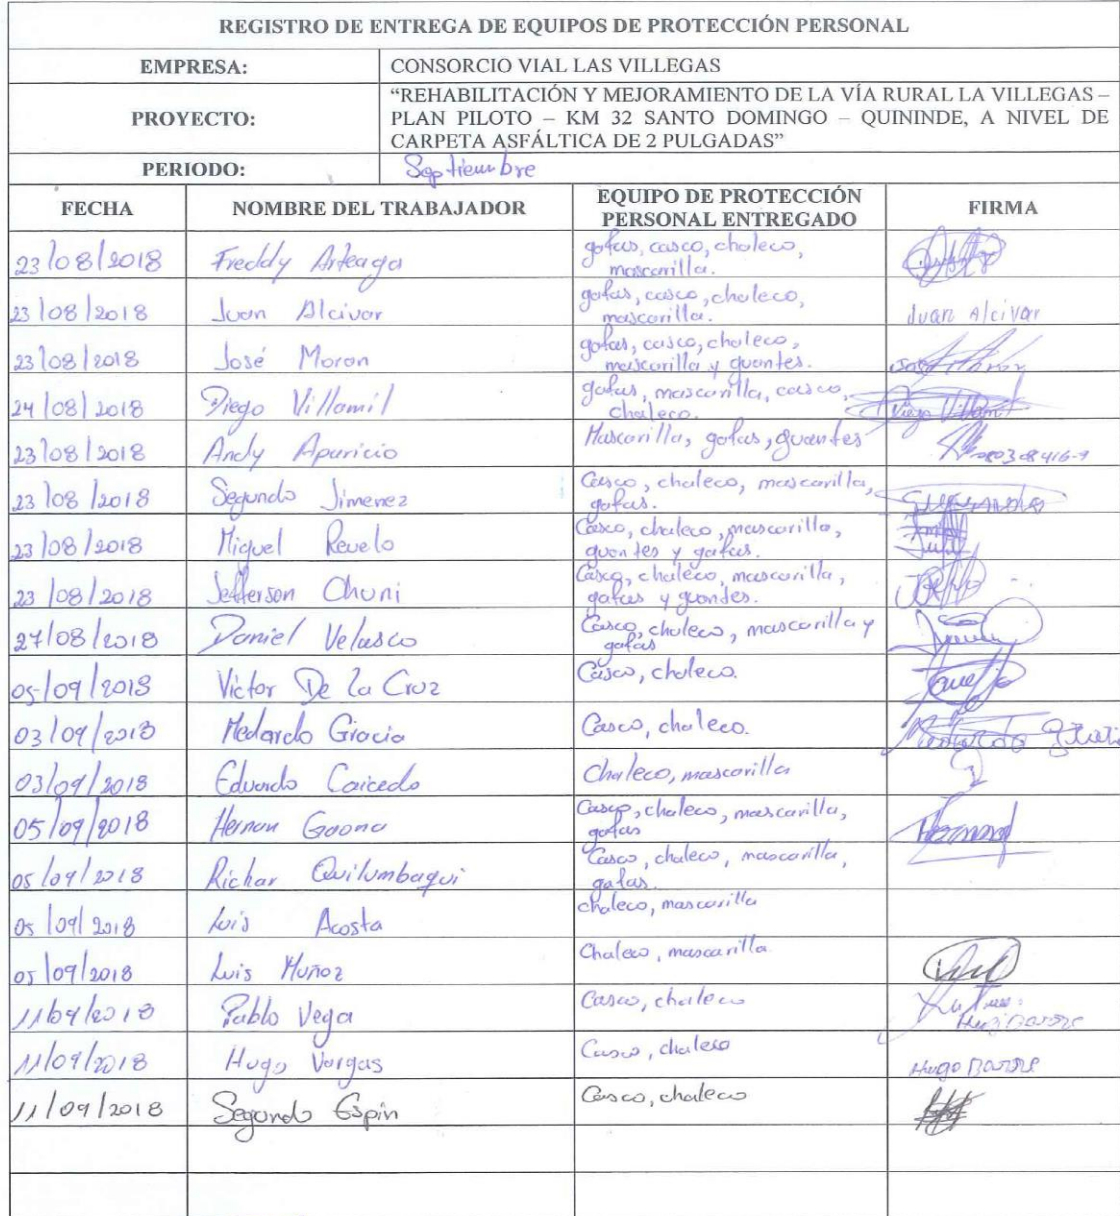 REGISTRO DE ENTREGA DE EQUIPOS DE PROTECCIÓN PERSONAL
EMPRESA: CONSORCIO VIAL LAS VILLEGAS
PROYECTO: “REHABILITACIÓN Y MEJORAMIENTO DE LA VÍA RURAL LA VILLEGAS –
PLAN PILOTO – KM 32 SANTO DOMINGO – QUININDE, A NIVEL DE
CARPETA ASFÁLTICA DE 2 PULGADAS”
PERIODO: Septiembre
FECHA NOMBRE DEL TRABAJADOR EQUIPO DE PROTECCIÓN PERSONAL ENTREGADO FIRMA
23/08/2018 Freddy Arteaga gafas, casco, chaleco,
mascarilla.
23/08/2018 Juan Alcivar gafas, casco, chaleco,
mascarilla. Juan Alcivar
23/08/2018 José Moran gafas, casco, chaleco,
mascarilla y guantes.
24/08/2018 Diego Villamil gafas, mascarilla, casco,
chaleco. Diego Villamil
23/08/2018 Andy Aparicio Mascarilla, gafas, guantes
23/08/2018 Segundo Jimenez Casco, chaleco, mascarilla,
gafas.
23/08/2018 Miguel Revelo Casco, chaleco, mascarilla,
guantes y gafas.
23/08/2018 Jefferson Chuni Casco, chaleco, mascarilla,
gafas y guantes.
27/08/2018 Daniel Velasco Casco, chaleco, mascarilla y
gafas
05/09/2018 Victor De La Cruz Casco, chaleco.
03/09/2018 Medardo Gracia Casco, chaleco.
03/09/2018 Eduardo Caicedo Chaleco, mascarilla
05/09/2018 Hernan Gaona Casco, chaleco, mascarilla,
gafas
05/09/2018 Richar Quilumbaqui Casco, chaleco, mascarilla,
gafas.
05/09/2018 Luis Acosta chaleco, mascarilla
05/09/2018 Luis Muñoz Chaleco, mascarilla
11/09/2018 Pablo Vega Casco, chaleco
11/09/2018 Hugo Vargas Casco, chaleco Hugo
11/09/2018 Segundo Espin Casco, chaleco